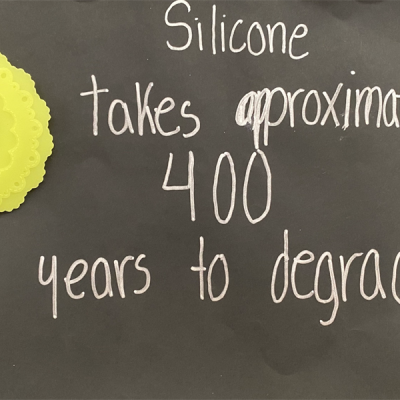 Silicone
takes approxima
400
years to degrad